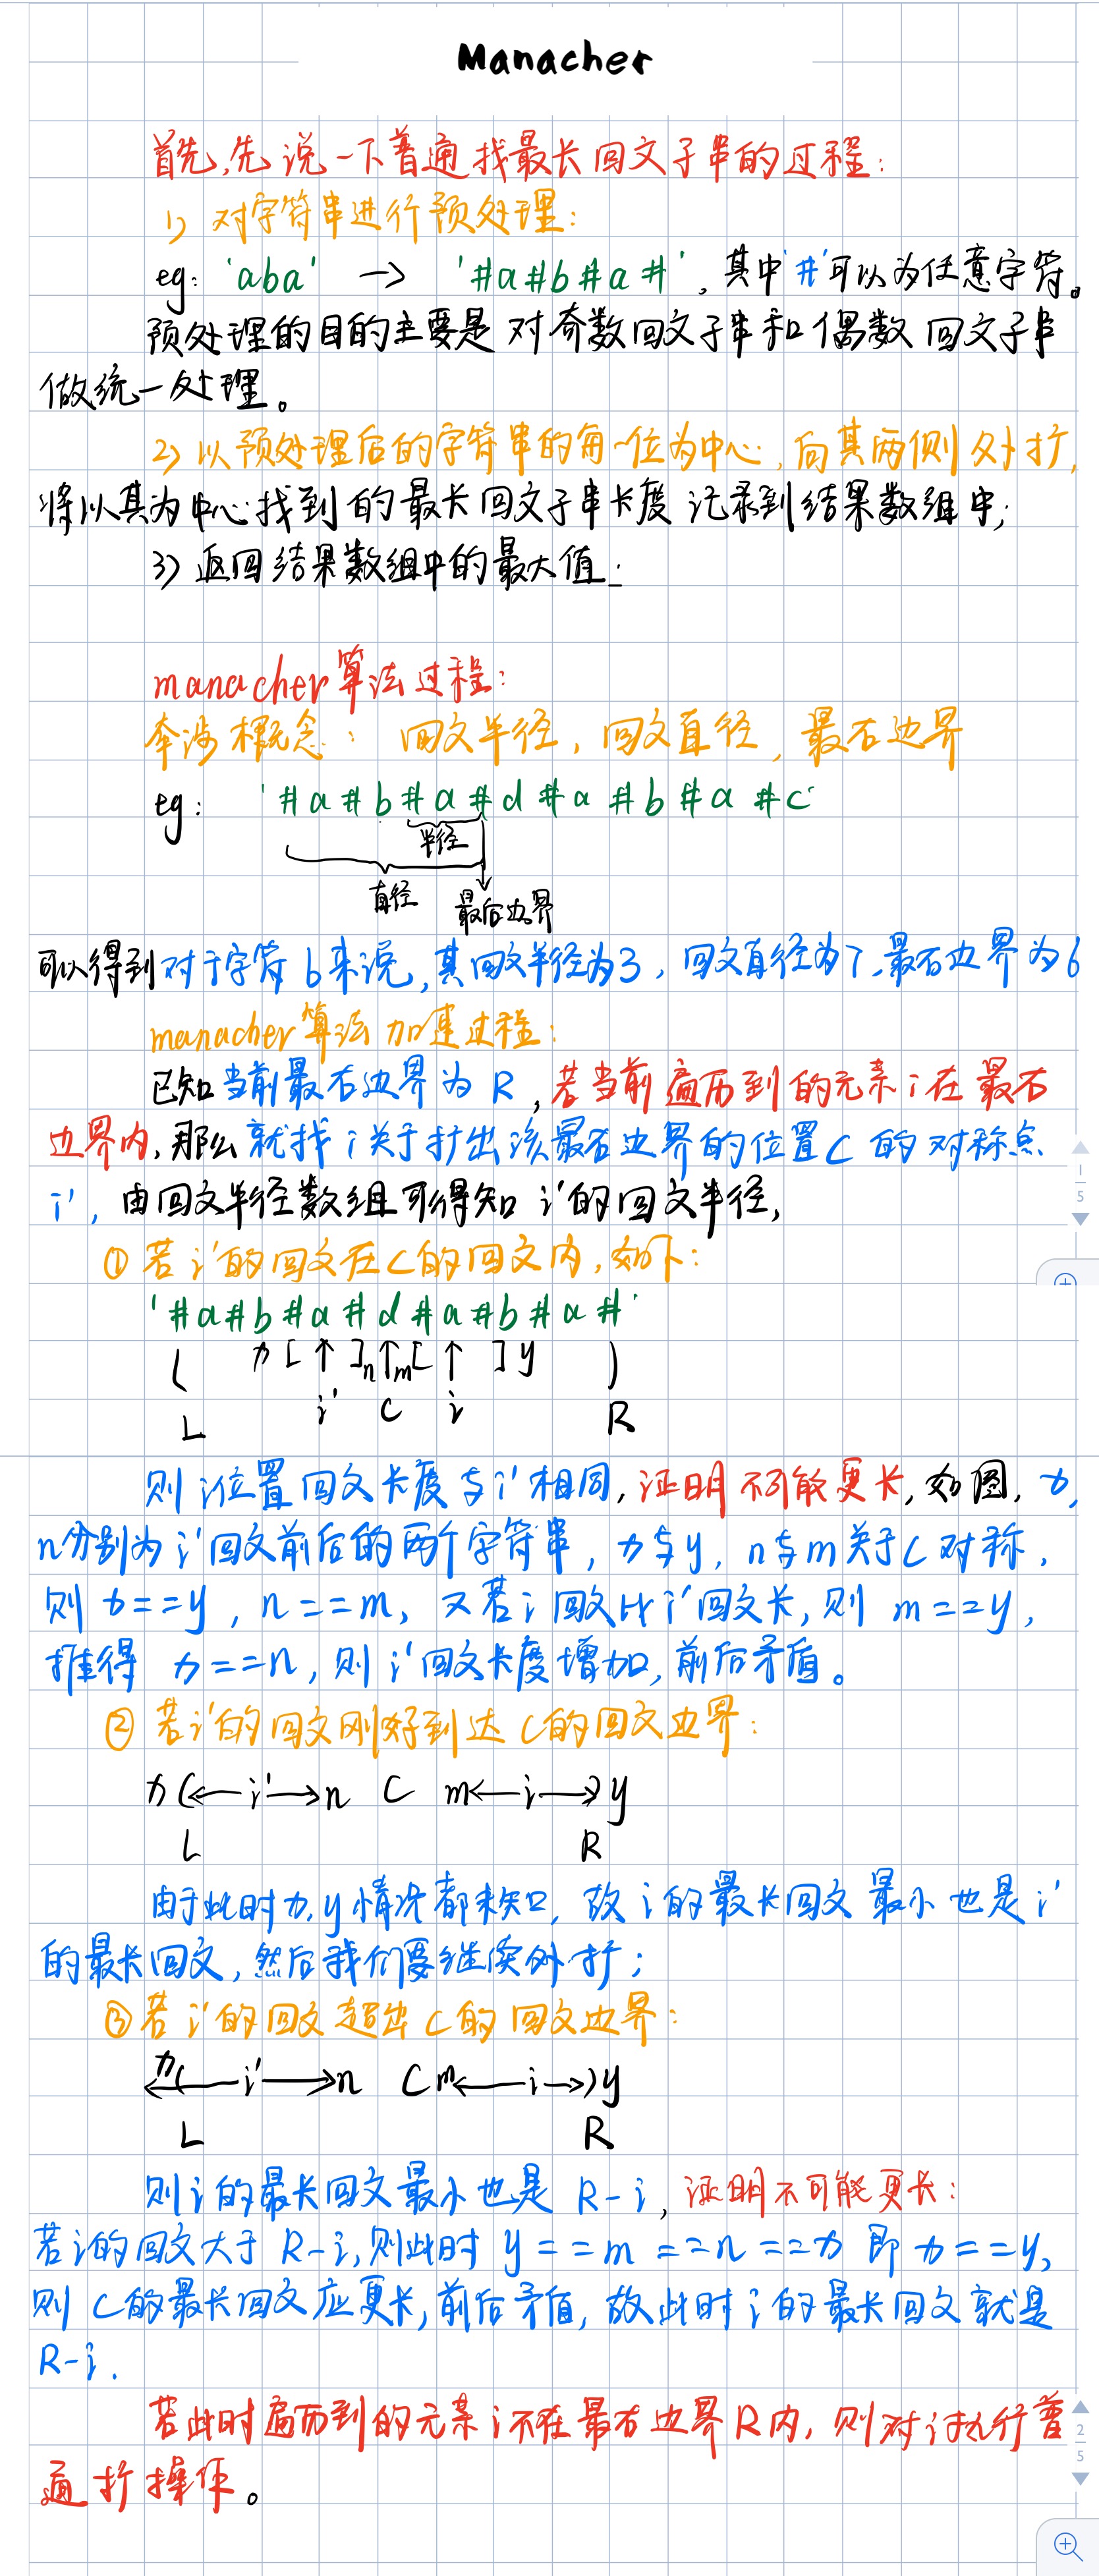 Manacher
首先,先说一下普通找最长回文子串的过程:
1) 对字符串进行预处理:
eg: 'aba' → '#a#b#a#', 其中'#'可以为任意字符。
预处理的目的主要是对奇数回文子串和偶数回文子串
做统一处理。
2) 以预处理后的字符串的每一位为中心,向其两侧外扩,
将以其为中心找到的最长回文子串长度记录到结果数组中;
3) 返回结果数组中的最大值.
manacher算法过程:
牵涉概念: 回文半径, 回文直径, 最右边界
eg: '#a#b#a#d#a#b#a#c'
半径
直径 最右边界
可以得到对于字符b来说,其回文半径为3, 回文直径为7,最右边界为6
manacher算法加速过程:
已知当前最右边界为R,若当前遍历到的元素i在最右
边界内,那么就找i关于扩出该最右边界的位置C的对称点
i', 由回文半径数组可得知i'的回文半径,
1
5
① 若i'的回文在C的回文内,如下:
'#a#b#a#d#a#b#a#'
( x [ ↑ ] n ↑ m [ ↑ ] y )
L i' C i R
则i位置回文长度与i'相同,证明不可能更长,如图, x,
n分别为i'回文前后的两个字符串, x与y, n与m关于C对称,
则 x==y, n==m, 又若i回文比i'回文长,则 m==y,
推得 x==n,则i'回文长度增加,前后矛盾。
② 若i'的回文刚好到达C的回文边界:
x (←i'→ n C m ←i→) y
L R
由于此时x,y情况都未知, 故i的最长回文最小也是i'
的最长回文,然后我们要继续外扩;
③ 若i'的回文超出C的回文边界:
x ( ←i'→ n C m ←i→) y
L R
则i的最长回文最小也是 R-i,证明不可能更长:
若i的回文大于 R-i,则此时 y==m==n==x 即 x==y,
则C的最长回文应更长,前后矛盾,故此时i的最长回文就是
R-i.
若此时遍历到的元素i不在最右边界R内, 则对i执行普
通扩操作。
2
5